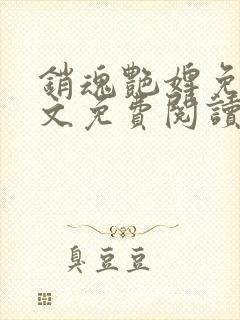 銷魂艷婢免
文免費閱讀
臭豆豆